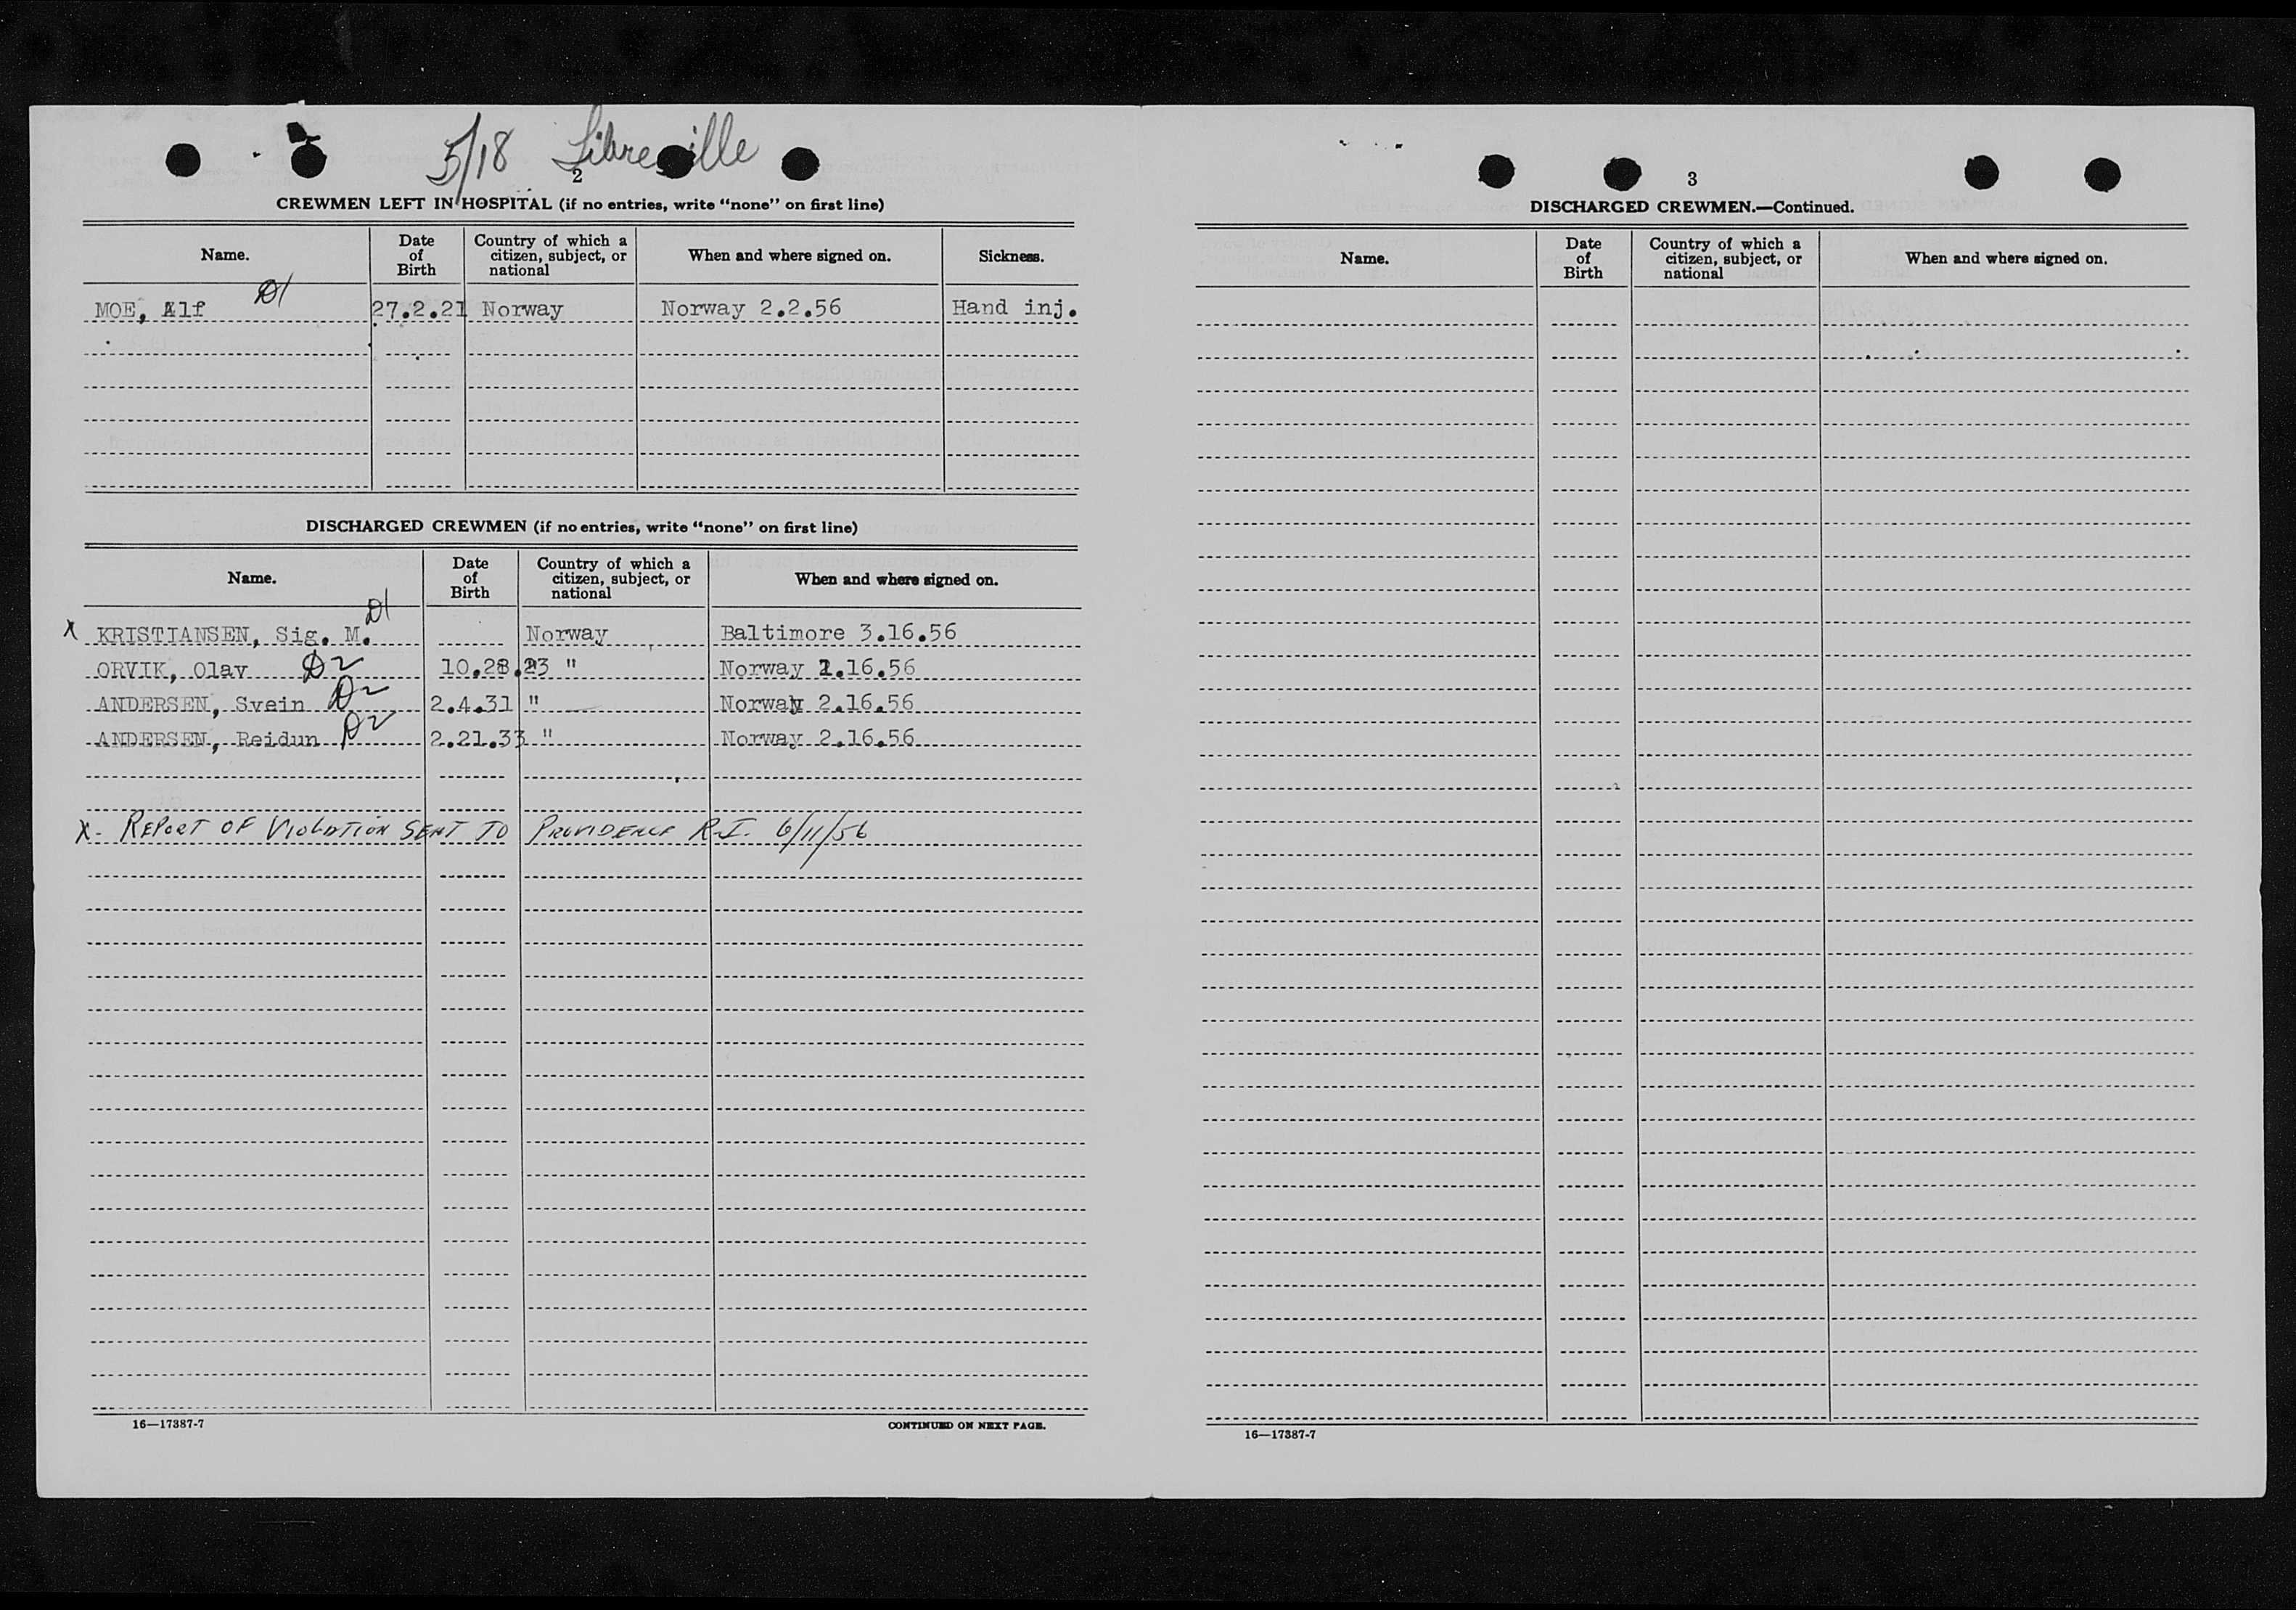 5/18 Libreville
2
CREWMEN LEFT IN HOSPITAL (if no entries, write “none” on first line)
Name. Date of Birth Country of which a citizen, subject, or national When and where signed on. Sickness.
D1
MOE, Alf 27.2.21 Norway Norway 2.2.56 Hand inj.
DISCHARGED CREWMEN (if no entries, write “none” on first line)
Name. Date of Birth Country of which a citizen, subject, or national When and where signed on.
D1
X KRISTIANSEN, Sig. M. Norway Baltimore 3.16.56
ORVIK, Olav D2 10.28.23 " Norway 2.16.56
ANDERSEN, Svein D2 2.4.31 " Norway 2.16.56
ANDERSEN, Reidun D2 2.21.33 " Norway 2.16.56
X- REPORT OF VIOLATION SENT TO PROVIDENCE R.I. 6/11/56
16—17387-7 CONTINUED ON NEXT PAGE.
3
DISCHARGED CREWMEN.—Continued.
Name. Date of Birth Country of which a citizen, subject, or national When and where signed on.
16—17387-7